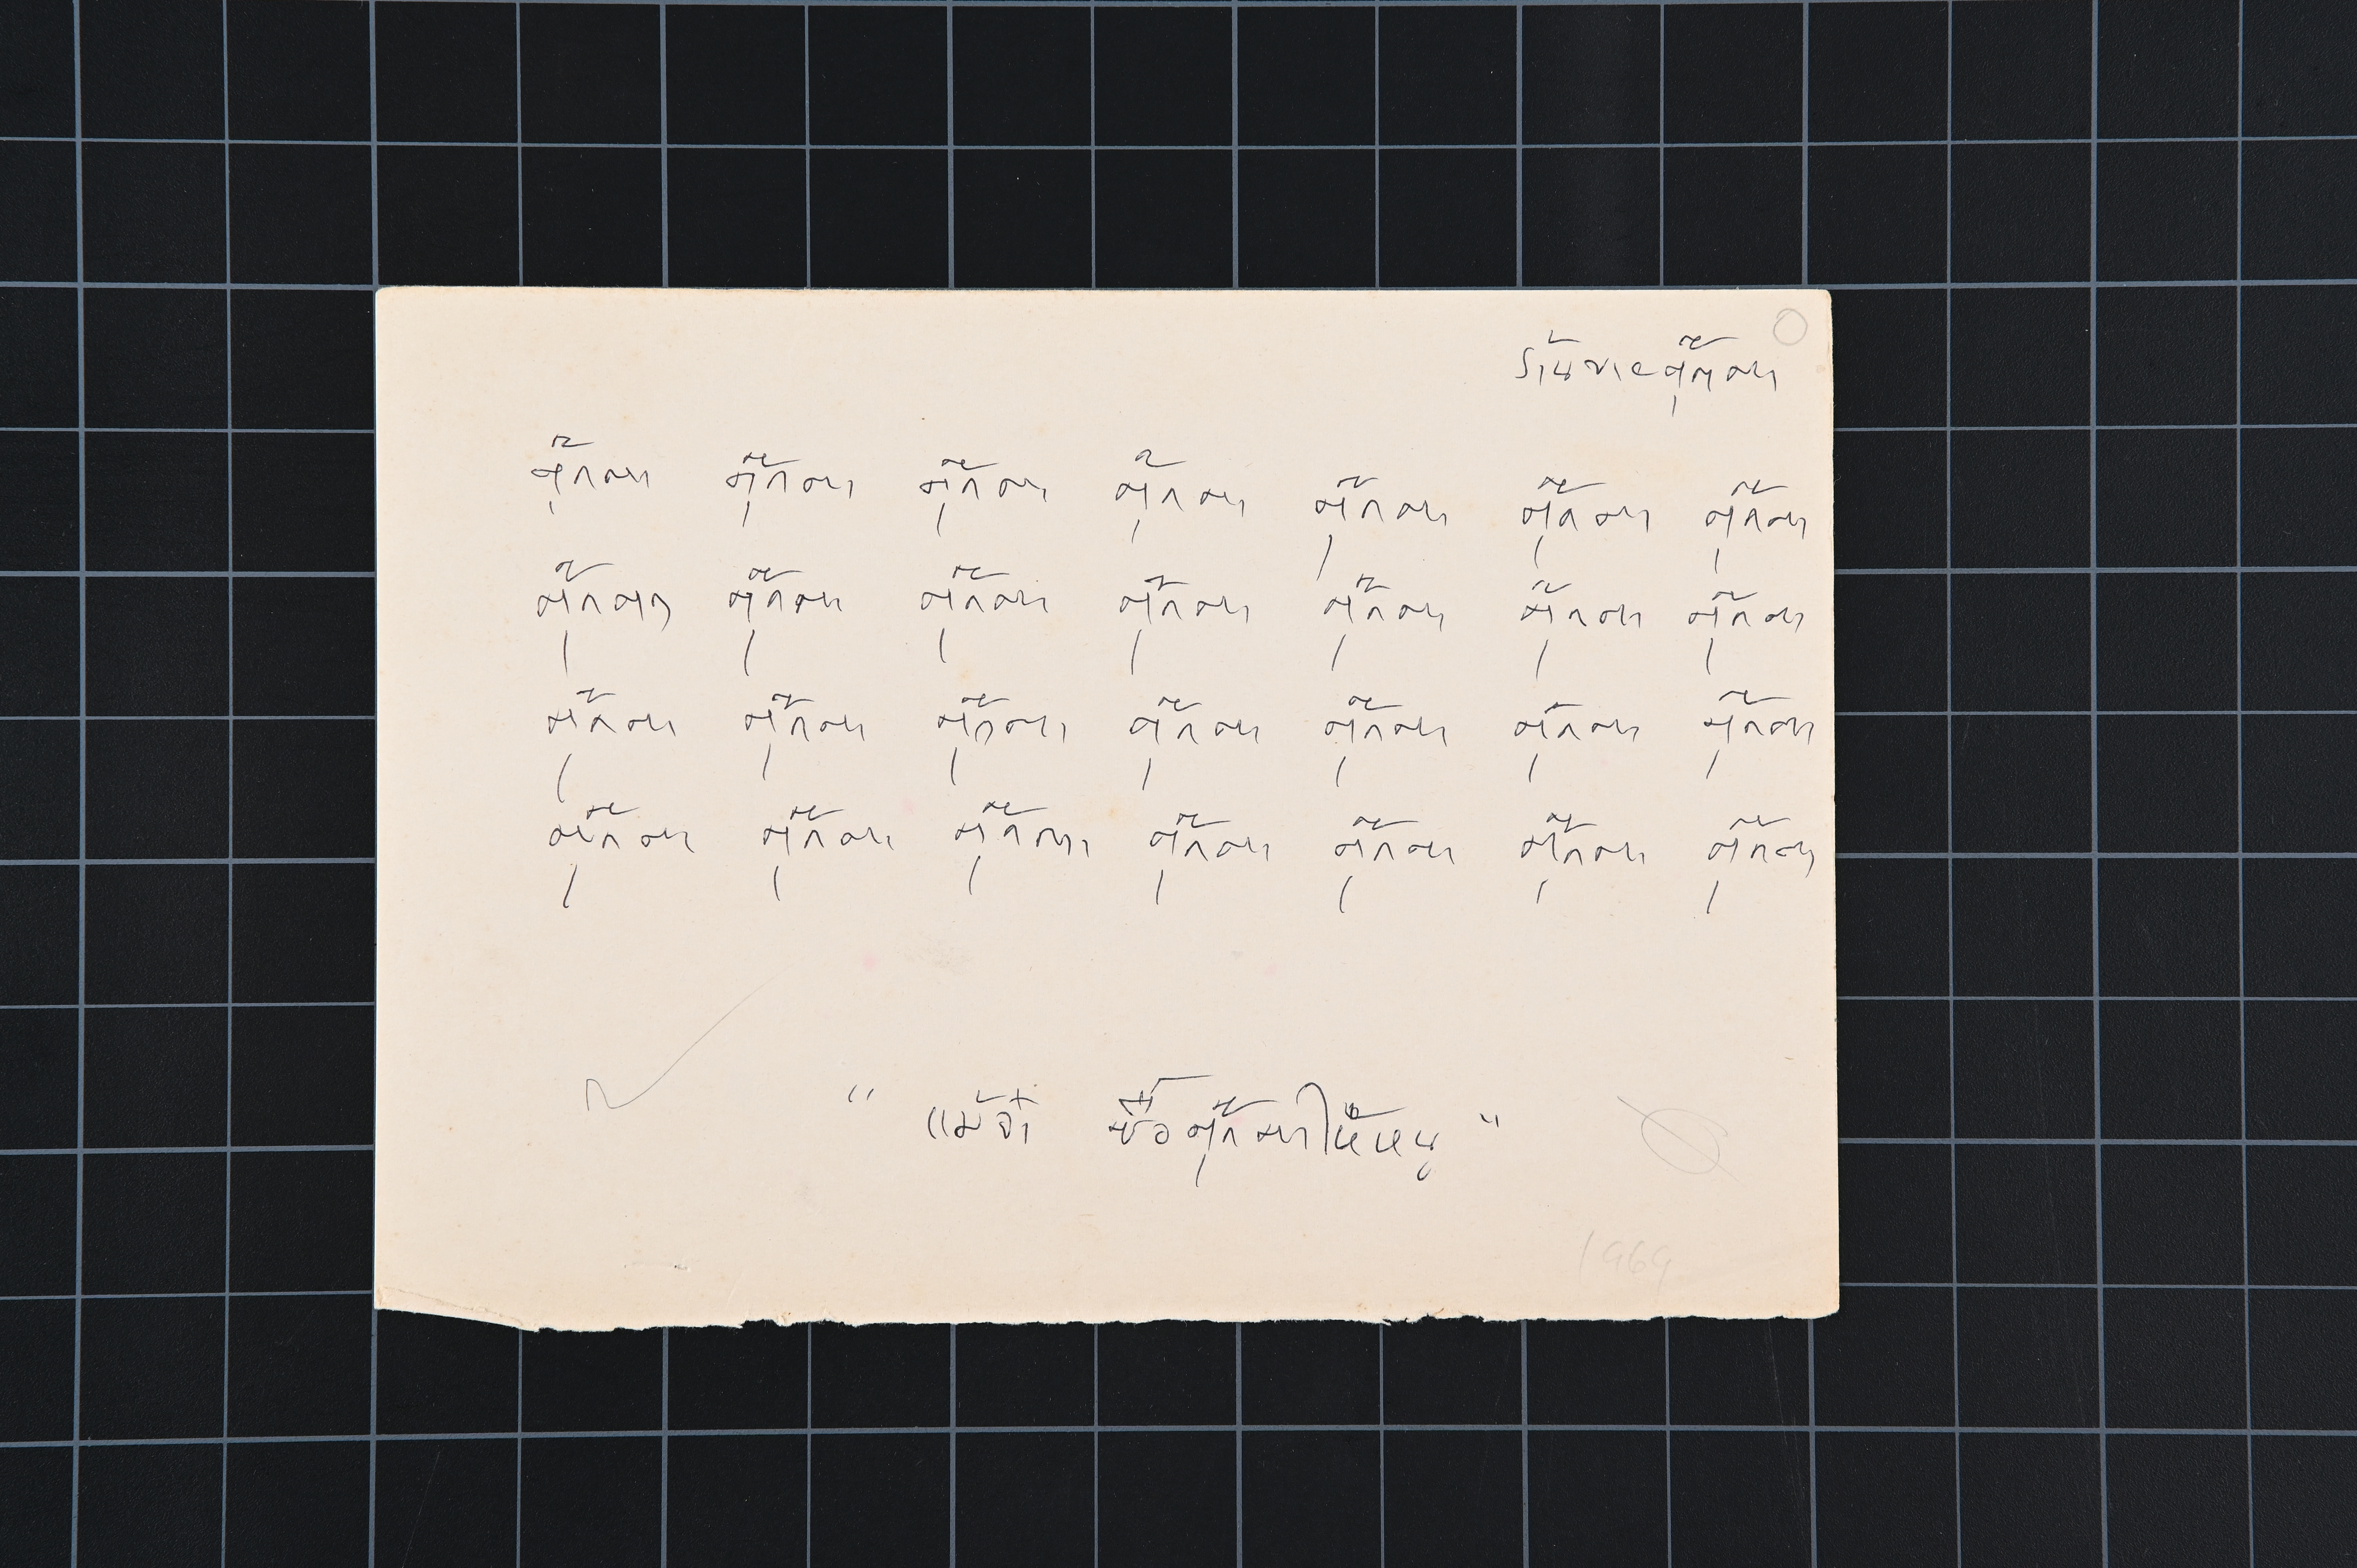 ร้านขายตุ๊กตา
ตุ๊กตา ตุ๊กตา ตุ๊กตา ตุ๊กตา ตุ๊กตา ตุ๊กตา ตุ๊กตา
ตุ๊กตา ตุ๊กตา ตุ๊กตา ตุ๊กตา ตุ๊กตา ตุ๊กตา ตุ๊กตา
ตุ๊กตา ตุ๊กตา ตุ๊กตา ตุ๊กตา ตุ๊กตา ตุ๊กตา ตุ๊กตา
ตุ๊กตา ตุ๊กตา ตุ๊กตา ตุ๊กตา ตุ๊กตา ตุ๊กตา ตุ๊กตา
" แม้จ๋า ซื้อตุ๊กตาให้หนู "
1969